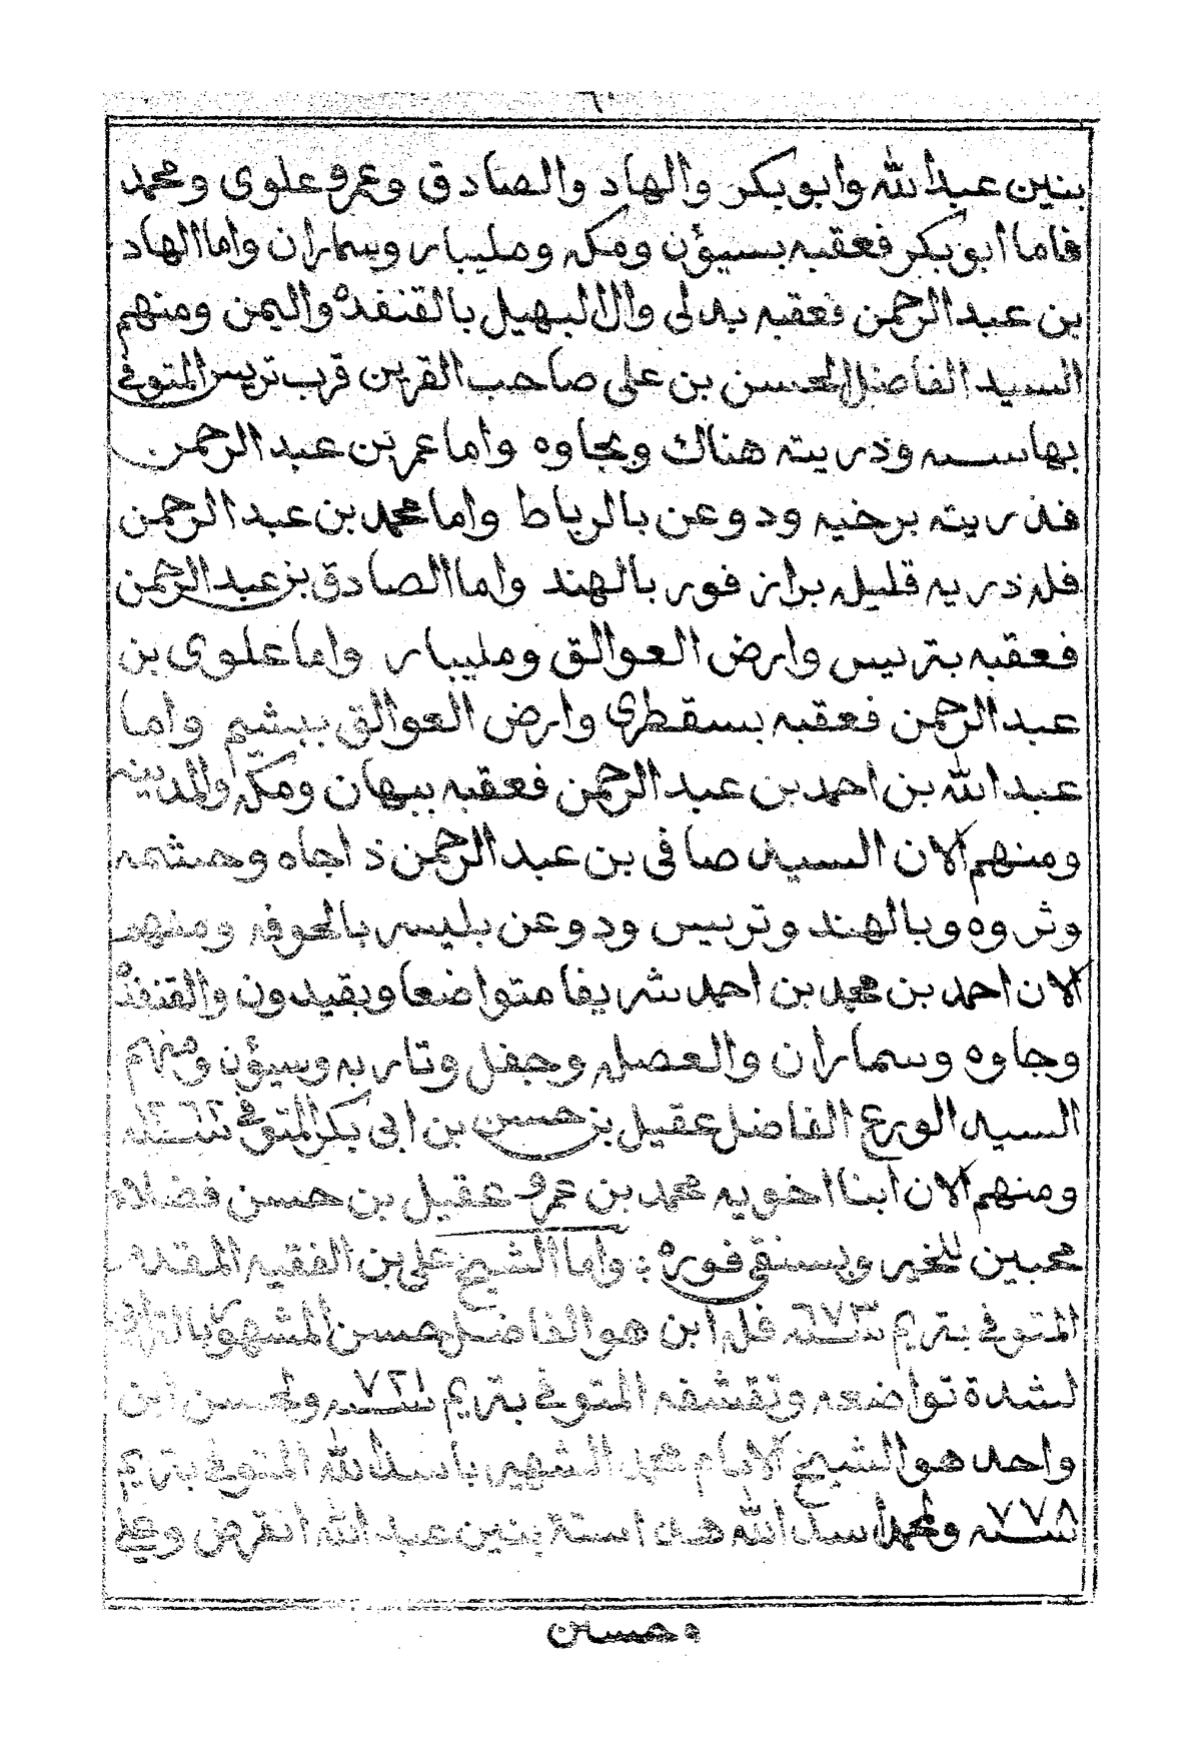 ٦٠
بنين عبدالله وابوبكر والهاد والصادق وعمر وعلوى ومحمد
فاما ابوبكر فعقبه بسيؤن ومكه ومليبار وسماران واما الهاد
بن عبدالرحمن فعقبه بدلى وال البهيل بالقنفذه واليمن ومنهم
السيد الفاضل الحسن بن على صاحب القرين قرب تريس المتوفى
بها سنه وذريته هناك وبجاوه واما عمر بن عبد الرحمن
فذريته برخيه ودوعن بالرباط واما محمد بن عبد الرحمن
فله ذريه قليله براز فور بالهند واما الصادق بن عبد الرحمن
فعقبه بتريس وارض العوالق ومليبار واما علوى بن
عبد الرحمن فعقبه بسقطرى وارض العوالق ببشيم واما
عبد الله بن احمد بن عبد الرحمن فعقبه ببهان ومكه والمدينه
ومنهم الان السيد صافى بن عبد الرحمن ذا جاه وحشمه
وثروه وبالهند وتريس ودوعن بليسر بالحوفه ومنهم
الان احمد بن محمد بن احمد شريفا متواضعا وبقيدون والقنفذه
وجاوه وسماران والعصله وجفل وتاربه وسيؤن ومنهم
السيد الورع الفاضل عقيل بن حسن بن ابى بكر المتوفى سنه
ومنهم الان ابنا اخويه محمد بن عمر وعقيل بن حسن فضلاء
محبين للخير وبسنقى فوره : واما الشيخ على بن الفقيه المقدم
المتوفى بتريم سنه ٦٧٣ فله ابن هو الفاضل حسن المشهور
لشدة تواضعه وتقشفه المتوفى بتريم سنه ٧٢١ ولحسن ابن
واحد هو الشيخ الامام محمد الشهير باسد الله المتوفى بتريم
سنه ٧٧٨ ولمحمد اسد الله هذا ستة بنين عبد الله انقرض وعلى
وحسين